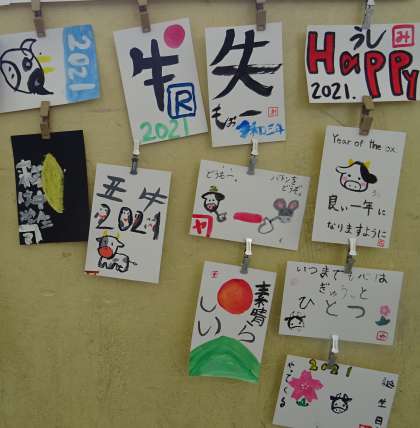 2021
牛
R
2021
失
もぅ
令和三年
うし
み
Happy
2021.
丑牛
2021
どうもー。
バトンを
どうぞ。
や
Year of the ox
良い一年に
なりますように
素晴ら
しい
いつまでも心は
ぎゅうっと
ひとつ
2021
やってくる
誕生日